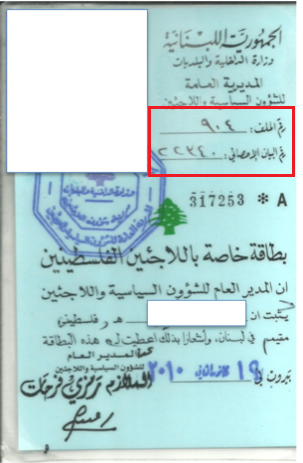 الجمهورية اللبنانية
وزارة الداخلية والبلديات
المديرية العامة
للشؤون السياسية واللاجئين
رقم الملف: ٩٠٤
رقم البيان الإحصائي: ٢٢٣٤٠
317253 * A
بطاقة خاصة باللاجئين الفلسطينيين
ان المدير العام للشؤون السياسية واللاجئين
يثبت ان هو فلسطيني
مقيم في لبنان، واشعارا بذلك اعطيت له هذه البطاقة
المدير العام
للشؤون السياسية واللاجئين
بيروت في ١٩ ٢٠١٠